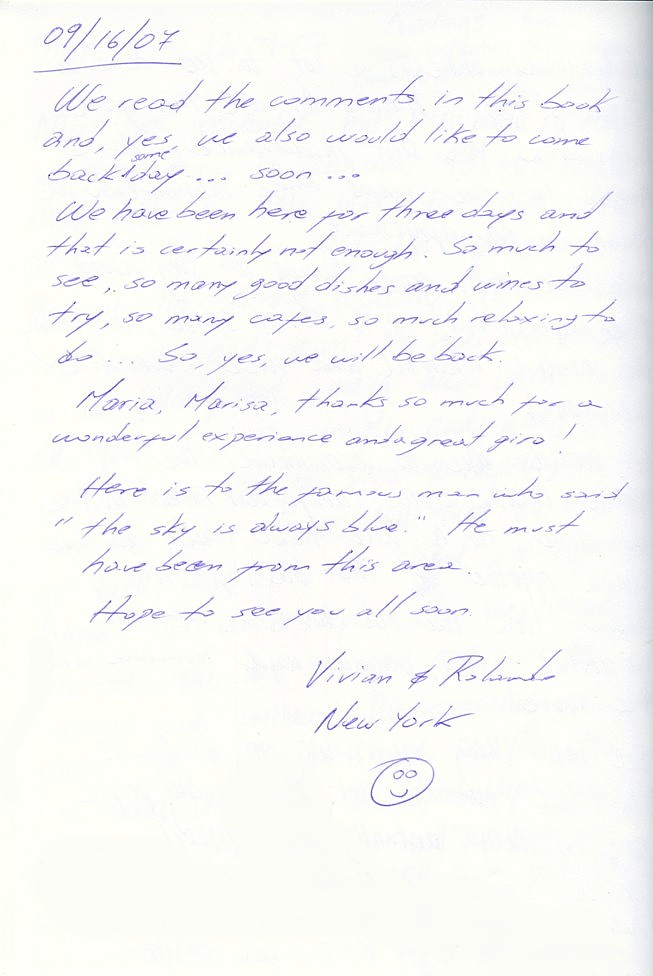 09/16/07
We read the comments in this book
and, yes, we also would like to come
back some day ... soon ...
We have been here for three days and
that is certainly not enough. So much to
see, so many good dishes and wines to
try, so many cafes, so much relaxing to
do ... So, yes, we will be back.
Maria, Marisa, thanks so much for a
wonderful experience and a great giro!
Here is to the famous man who said
"the sky is always blue." He must
have been from this area.
Hope to see you all soon.
Vivian & Rolando
New York